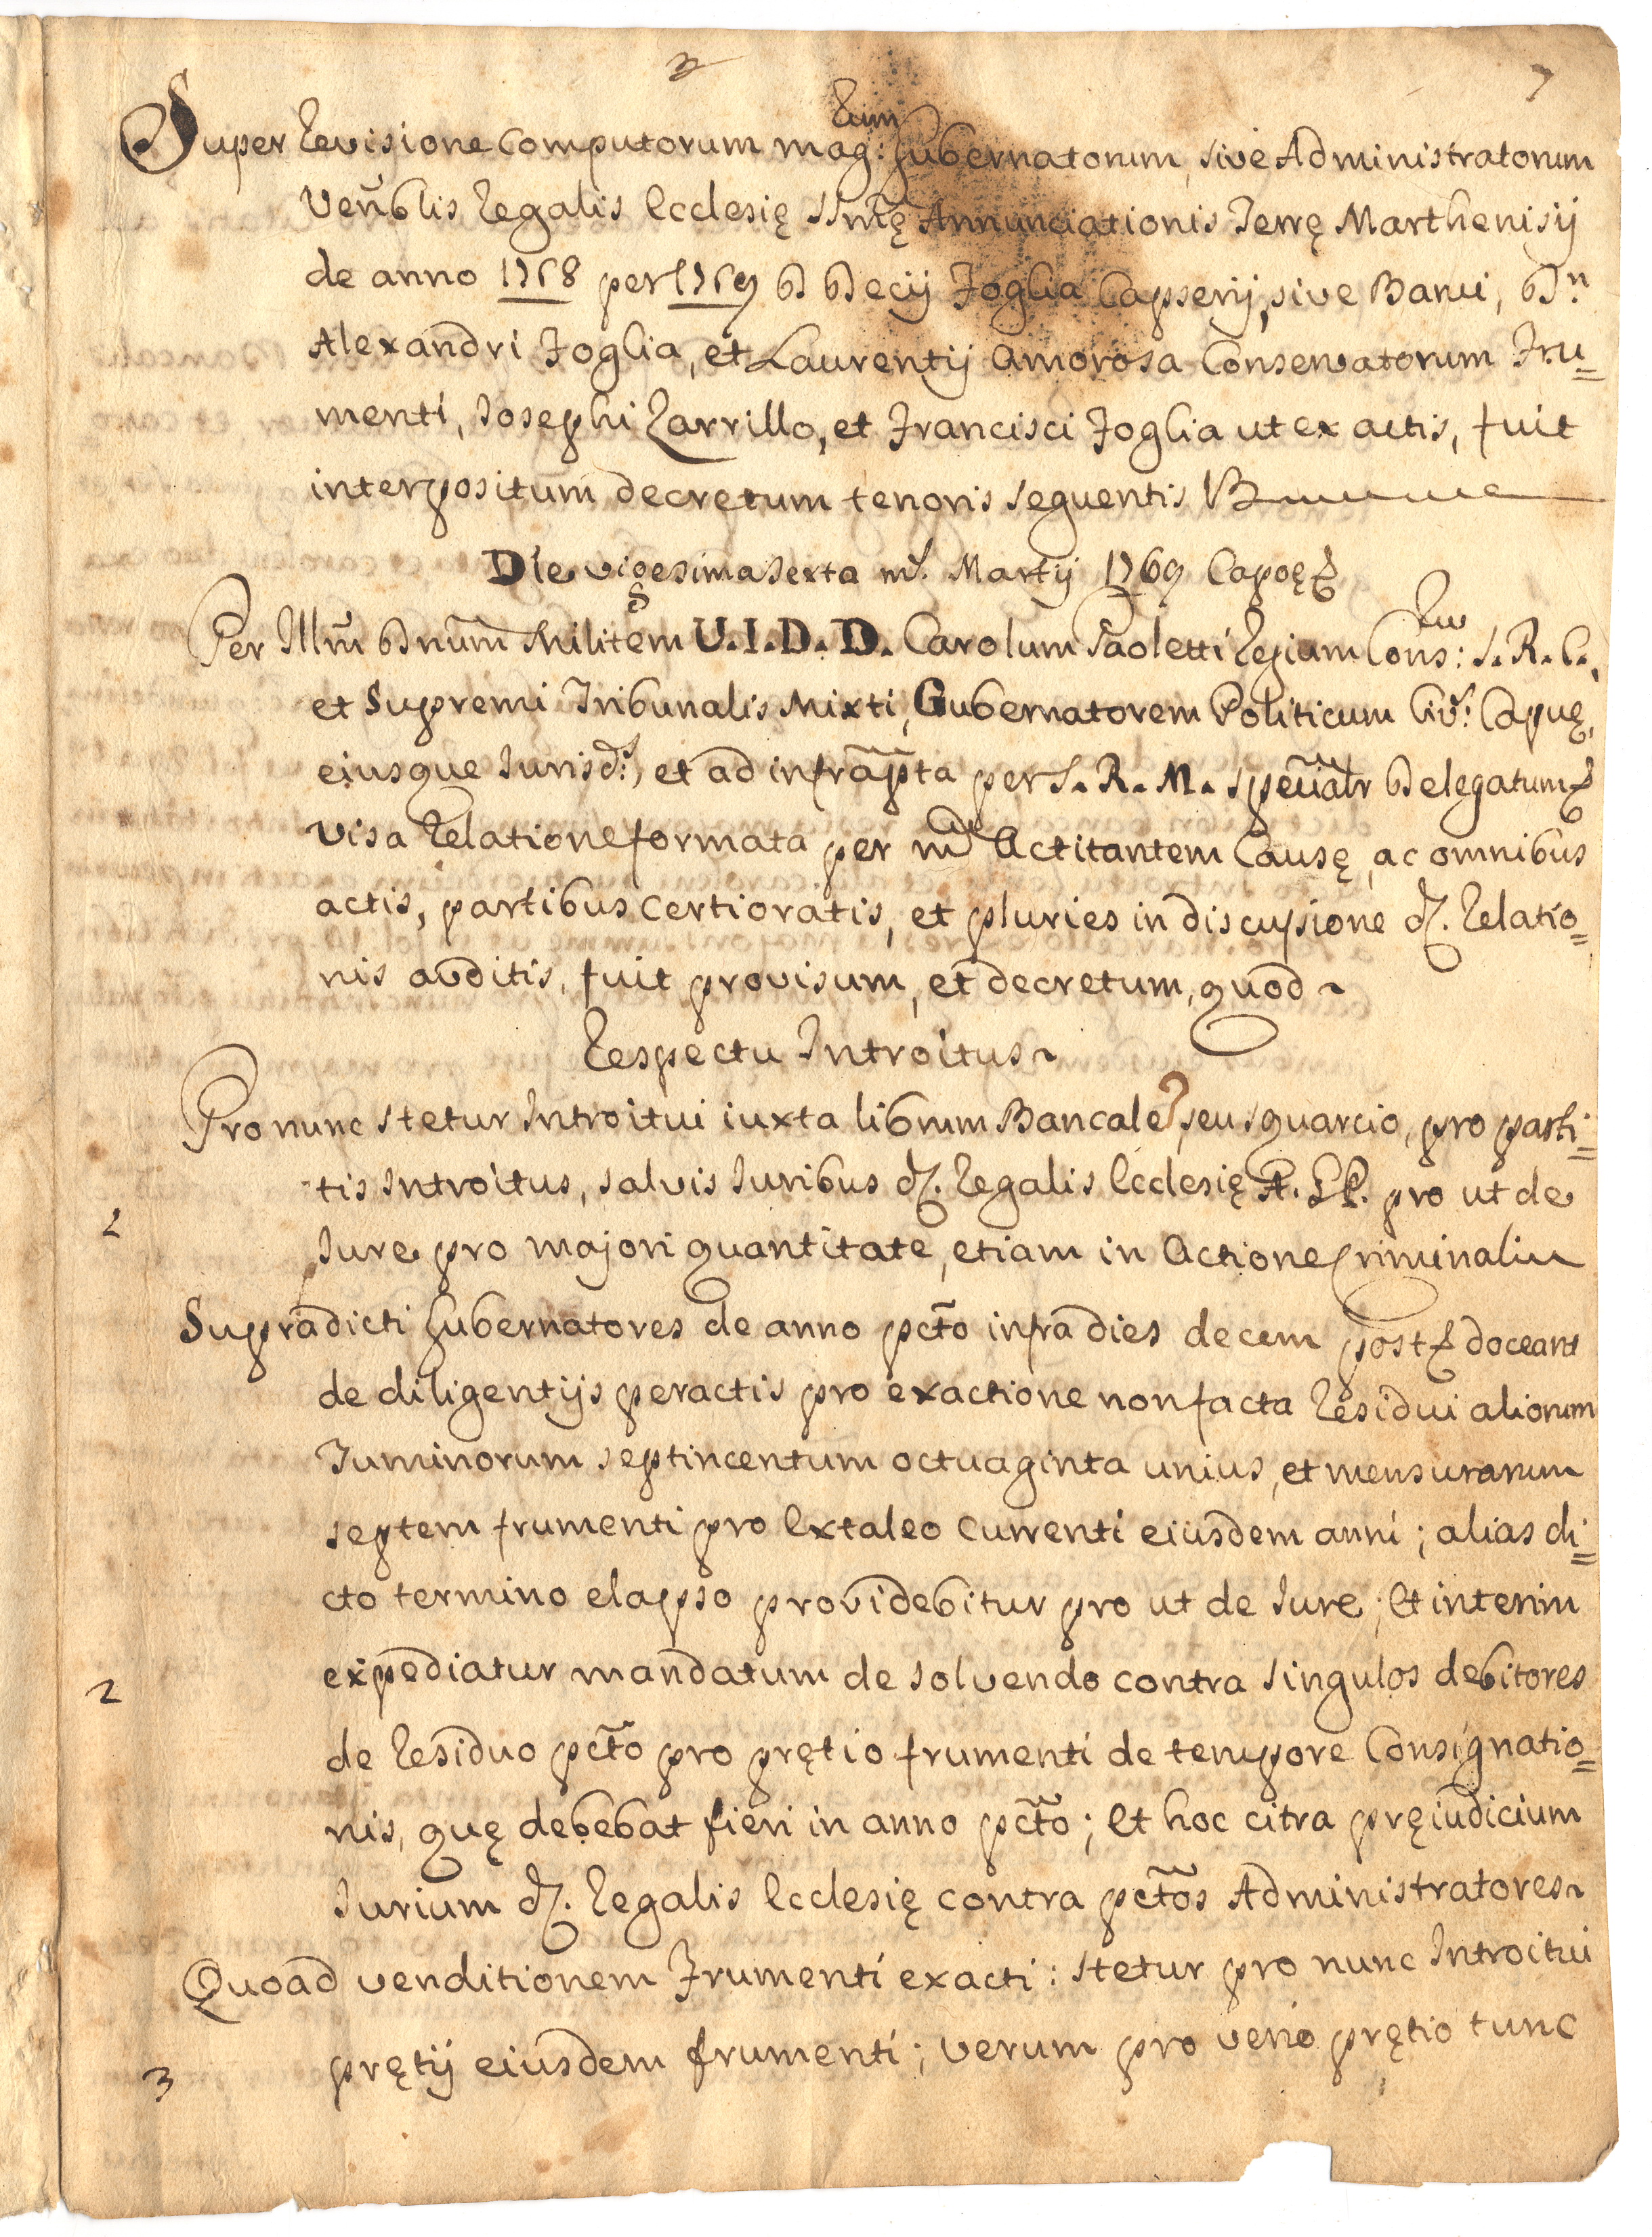 3 7
Super Revisione Computorum mag:rum Gubernatorum, sive Administratorum
Ven̄blis Regalis Ecclesię SSm̄ę Annunciationis Terrę Marthenisij
de anno 1768 per 1769 D Decij Foglia Capserij, sive Banci, D.n
Alexandri Foglia, et Laurentij Amorosa Conservatorum Fru=
menti, Josephi Zarrillo, et Francisci Foglia ut ex actis, fuit
interpositum decretum tenoris sequentis
Die vigesima sexta m.s Martij 1769 Capuę
Per Illm̄ Dnūm Militem U.I.D.D. Carolum Paoletti Regium Cons:rium S.R.C.,
et Supremi Tribunalis Mixti, Gubernatorem Politicum Civ.s: Capuę,
eiusque Jurisd:s, et ad infrap̄ta per S.R.M. speciālr Delegatum
visa Relatione formata per m̄cum Actitantem Causę, ac omnibus
actis, partibus certioratis, et pluries in discussione d. Relatio=
nis auditis, fuit provisum, et decretum, quod
Respectu Introitus
Pro nunc stetur Introitui iuxta librum Bancale, seu squarcio, pro parti=
tis Introitus, salvis Juribus d. Regalis Ecclesię A.G.P. pro ut de
1
Jure pro majori quantitate, etiam in Actione Criminali
Supradicti Gubernatores de anno pc̄to infra dies decem post doceant
de diligentijs peractis pro exactione non facta Residui aliorum
Tuminorum septincentum octuaginta unius, et mensurarum
septem frumenti pro Extaleo Currenti eiusdem anni; alias di=
cto termino elapso providebitur pro ut de Jure; Et interim
expediatur mandatum de solvendo contra singulos debitores
2
de Residuo pc̄to pro prętio frumenti de tempore Consignatio=
nis, quę debebat fieri in anno pc̄to; Et hoc citra pręiudicium
Jurium d. Regalis Ecclesię contra pc̄tos Administratores
Quoad venditionem Frumenti exacti: stetur pro nunc Introitui
3
prętij eiusdem frumenti; verum pro verio prętio tunc